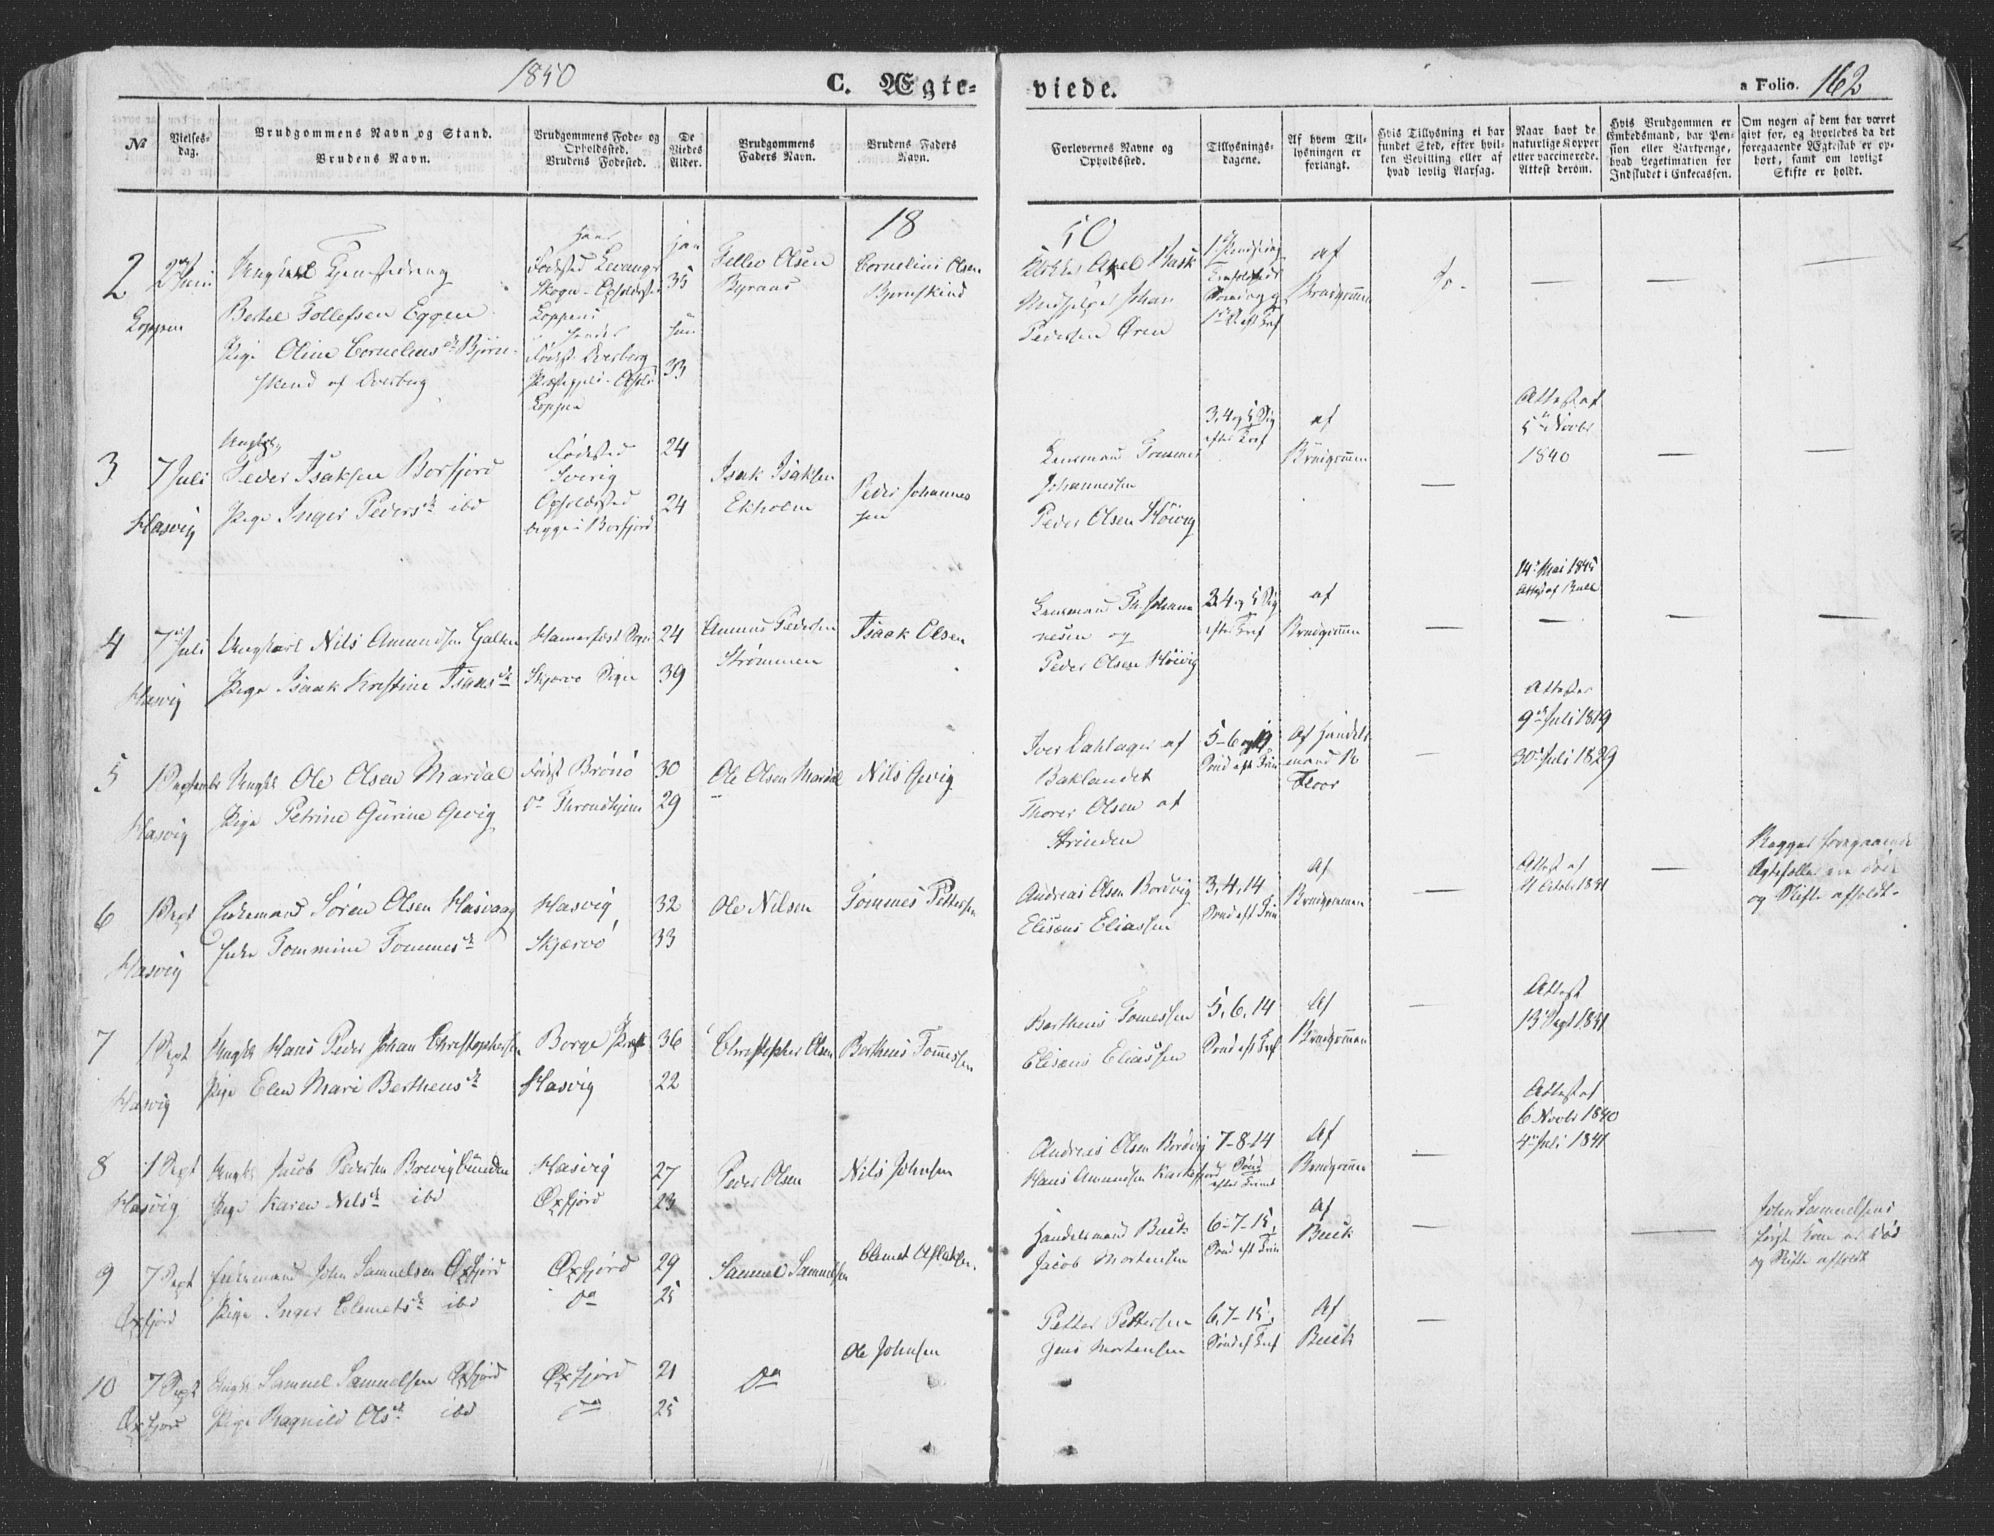 1850
C. Ægte-
viede.
a Folio. 162
No
Vielses-
dag.
Brudgommens Navn og Stand.
Brudens Navn.
Brudgommens Føde- og
Opholdssted.
Brudens Fødested.
De
Viedes
Alder.
Brudgommens
Faders Navn.
Brudens Faders
Navn.
Forlovernes Navne og
Opholdssted.
Tillysnings-
dagene.
Af hvem Til-
lysningen er
forlangt.
Hvis Tillysning ei har
fundet Sted, efter hvil-
ken Bevilling eller af
hvad lovlig Aarsag.
Naar havt de
naturlige Kopper
eller vaccinerede.
Attest derom.
Hvis Brudgommen er
Embedsmand, har Pen-
sion eller Vartpenge,
hvad Legitimation for
Indskudet i Enkecassen.
Om nogen af dem har været
givt for, og hvorledes da det
foregaaende Ægteskab er op-
hørt, samt om lovligt
Skifte er holdt.
18
50
2
Juni
Loppen
Bertel Tollefsen Eggen
Pige Oline Cornelius Bjørn-
skind af Overberg
Fødested Levanger
Skogn - Opholdssted
Loppen
Fødest Overberg
Loppen
35
33
Tollev Olsen
Cornelius Olsen
Bjørnskind
Axel Busk
Johan
Pedersen Ören
af
Brudgommen
3
7 Juli
Hasvig
Peder Isaksen Borfjord
Pige Inger Peders ibd
Fødested
Sverig
Opholdssted
begge i Borfjord
24
24
Isak Isaksen
Ekholm
Peder Johannes
sen
Lensmand Tommes
Johannessen
Peder Olsen Höivig
3, 4 og 5 Søg
efter Tref
af
Brudgommen
Attest af
5 Novbr
1840
4
7 Juli
Hasvig
Ungkarl Nils Amundsen Galten
Pige Isaak Kristine Isaks
Hamerfest Sogn
Skjervø Sogn
24
39
Amund Pedersen
Strømmen
Isaak Olsen
Lensmand Th Johan
nesen og
Peder Olsen Höivig
3, 4 og 5 Søg
efter Tref
af
Brudgommen
14 Mai 1845
Attest af
5
1 September
Hasvig
Ungk Ole Olsen Mardal
Pige Petrine Gurine Gevig
Födest Brönö
do Throndhjem
30
29
Ole Olsen Mardal
Nils Gevig
Iver Dahlager af
Baklandet
Thorer Olsen af
Strinden
5-6 og
Sönd eft Trin
Af Handels
mand
Floor
Attester
9 Juli 1819
30 Juli 1829
6
1 Sept
Hasvig
Enkemand Sören Olsen Hasvaag
Enke Tommine Tommes
Hasvig
Skjærvö
32
33
Ole Nilsen
Tommes Pettersen
Andreas Olsen Bordvig
Elisæus Eliassen
3, 4, 14
Sönd eft Trin
Af
Brudgommen
Attest af
Octobr 1841
Begges foregaaende
Ægtefæller ere döde
og Skifte afholdt.
7
1 Sept
Hasvig
Ungk Hans Peder Johan Christophersen
Pige Elen Mari Bertheus
Borge Præst
Hasvig
36
22
Christopher Olsen
Bertheus Tommessen
Bertheus Tomessen
Elisæus Eliassen
5, 6, 14
Sönd eft Tref
Af
Brudgommen
Attest
13 Sept 1841
8
1 Sept
Hasvig
Ungk Jacob Pedersen Brevigbunden
Pige Karen Nils ibd
Hasvig
Öxfjord
27
23
Peder Olsen
Nils Johnsen
Andreas Olsen Bordvig
Hans Amundsen
7-8-14
Sönd
efter Trinit
Af
Brudgommen
Attest af
6 Novbr 1840
4 Juli 1841
9
7 Sept
Öxfjord
Enkemand John Samuelsen Öxfjord
Pige Inger Clemets ibd
Öxfjord
do
29
25
Samuel Samuelsen
Clemet
Handelsmand Buck
Jacob Mortensen
6-7-15,
Sönd eft Trin
Af
Buck
John Samuelsens
forige Kone er död
og Skifte afholdt
10
7 Sept
Öxfjord
Ungk Samuel Samuelsen Öxfjord
Pige Ragnild Ols ibd
Öxfjord
do
21
25
do
Ole Johnsen
Petter Pettersen
Jens Mortensen
6, 7-15,
Sönd ef Tref
Af
Buck